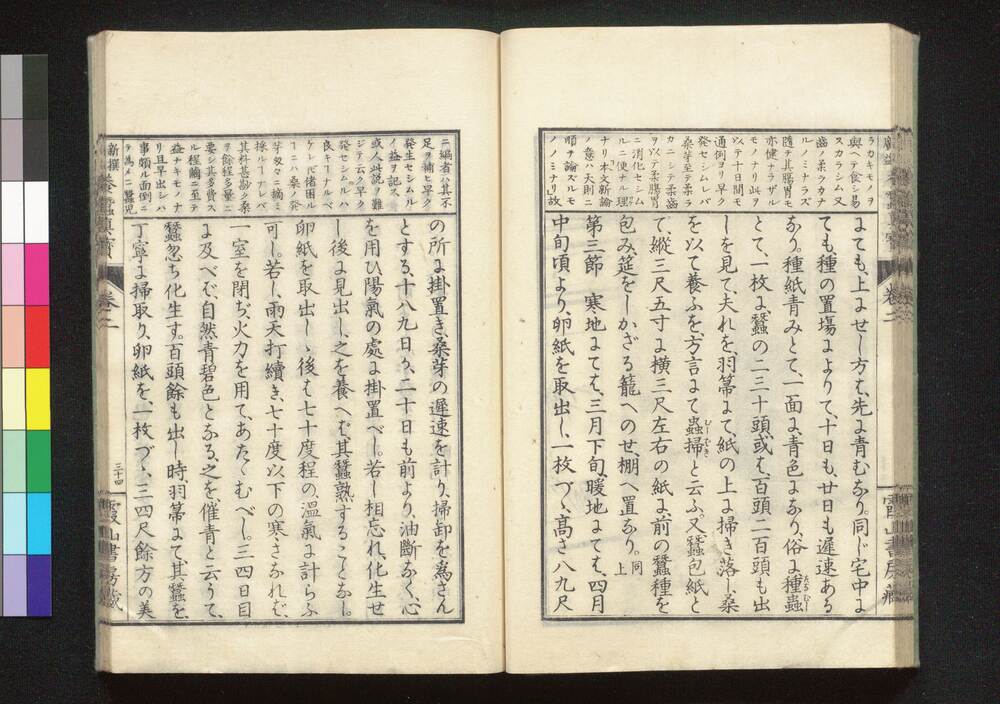 ラカキモノヲ
與ヘテ食シ易
スカラシム又
齒ノ柔クカナ
ルノミナラズ
隨テ其膓胃モ
亦健ナラザル
モノナリ此ヲ
以テ十日間モ
通例ヨリ早ク
發セシムレバ
桑芽至テ柔ラ
カニシテ柔齒
ヲ以テ柔膓胃
ニ消化セシム
ルニ便ナル理
ナリ本文新論
ノ意ハ大則ニ
順テ論ズルモ
ノノミナリ故
よても、上よせし方も、先よ青むなり。同じ宅中よ
ても、種の置塲よよりて、十日も、廿日も遲速ある
なり。種紙青みとて、一面よ、青色よなり、俗よ種蟲
とて、一枚よ、蠶の二三十頭、或も、百頭二百頭も出
しを見て、夫れを、羽箒よて、紙の上よ掃き落し、桑
を以て養ふを、方言よて蟲掃と云ふ、又、蠶包紙と
て、縱三尺五寸よ横三尺左右の紙よ、前の蠶種を
包み、筵をしかざる籠へのせ、棚へ置なり。同上
第三節 寒地よても、三月下旬、暖地よても、四月
中旬頃より、卵紙を取出し、一枚づゝ、高さ八九尺
卷二
霞山書房藏
ニ編者ハ其不
足ヲ補ヒ早ク
發生セシムル
イ益ヲ記ス
或人此説ヲ難
ジテ云ク早ク
發セシムルハ
良キ「ナルベ
ケレバ諸困ル
「ニハ桑ノ發
芽 々ニ摘ミ
採ル「ナレバ
其料甚尠ク桑
ヲ餘程多量ニ
要シ其多費ス
ル程繭ニ至テ
益ナキモノナ
リ且早出シハ
事頗ル面倒ニ
ヲ爲メニ蠶児
の所よ掛置き、桑芽の遲速を計り、掃卸を爲さん
とする、十八九日か、二十日も前より、油斷なく、心
を用ひ、陽氣の處よ掛置べし。若し相忘れ、化生せ
し後よ見出し、之を養へば、其蠶熟することなし。
卵紙を取出しゝ後も、七十度程の、温氣よ計らふ
可し。若し、雨天打續き、七十度以下の寒さなれば、
一室を閉ぢ、火力を用て、あたゝむべし。三四日目
よ及べば、自然青碧色となる、之を、催青と云うて、
蠶忽ち化生す。百頭餘も出し時、羽箒よて、其蠶を、
丁寧よ掃取り、卵紙を、一枚づゝ、三四尺餘方の美
新撰養蠶眞寶
卷二
三十四
霞山書房藏